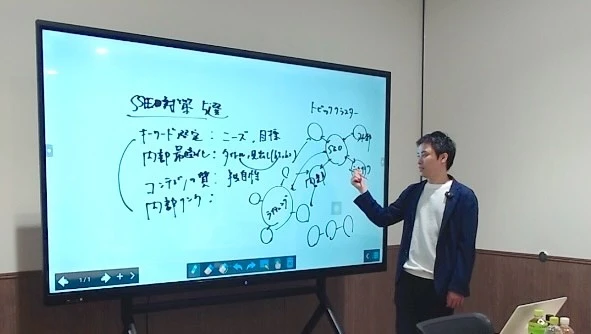 SEO対策 5選
キーワード選定：ニーズ、目標
内部最適化：タイトル、見出し(h2,h3)
コンテンツの質：独自性
内部リンク：
トピッククラスター
SEO
外部
内部
ライティング
1/1